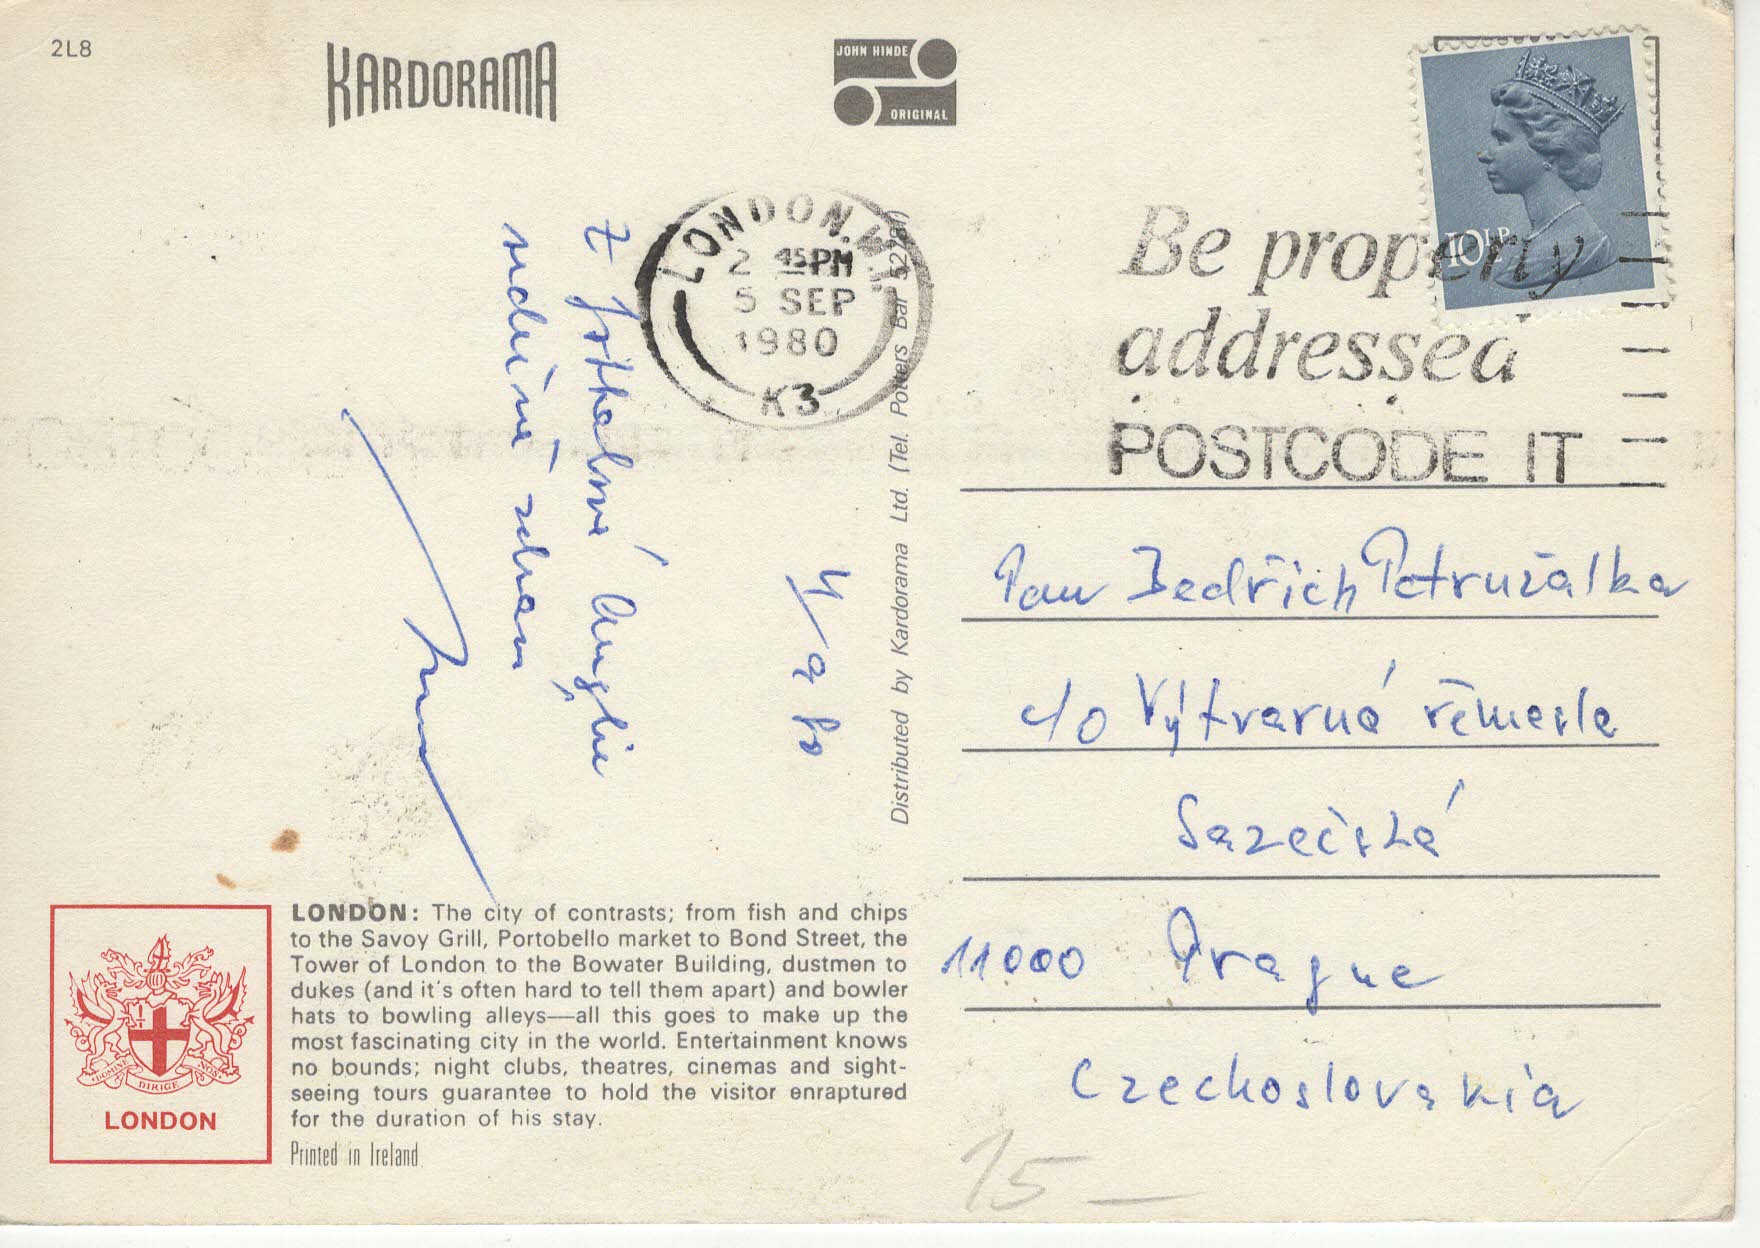 2L8
KARDORAMA
JOHN HINDE
ORIGINAL
10½P
LONDON. W1.
2 45PM
5 SEP
1980
K3
Be properly
addressed
POSTCODE IT
4/9 80
Z Anglie
srdečně zdraví
Distributed by Kardorama Ltd. (Tel. Potters Bar 52781)
Pan Bedřich Petružálka
c/o Výtvarná řemesla
Sazečská
11000 Prague
Czechoslovakia
15 —
LONDON: The city of contrasts; from fish and chips
to the Savoy Grill, Portobello market to Bond Street, the
Tower of London to the Bowater Building, dustmen to
dukes (and it's often hard to tell them apart) and bowler
hats to bowling alleys—all this goes to make up the
most fascinating city in the world. Entertainment knows
no bounds; night clubs, theatres, cinemas and sight-
seeing tours guarantee to hold the visitor enraptured
for the duration of his stay.
Printed in Ireland
DOMINE DIRIGE NOS
LONDON